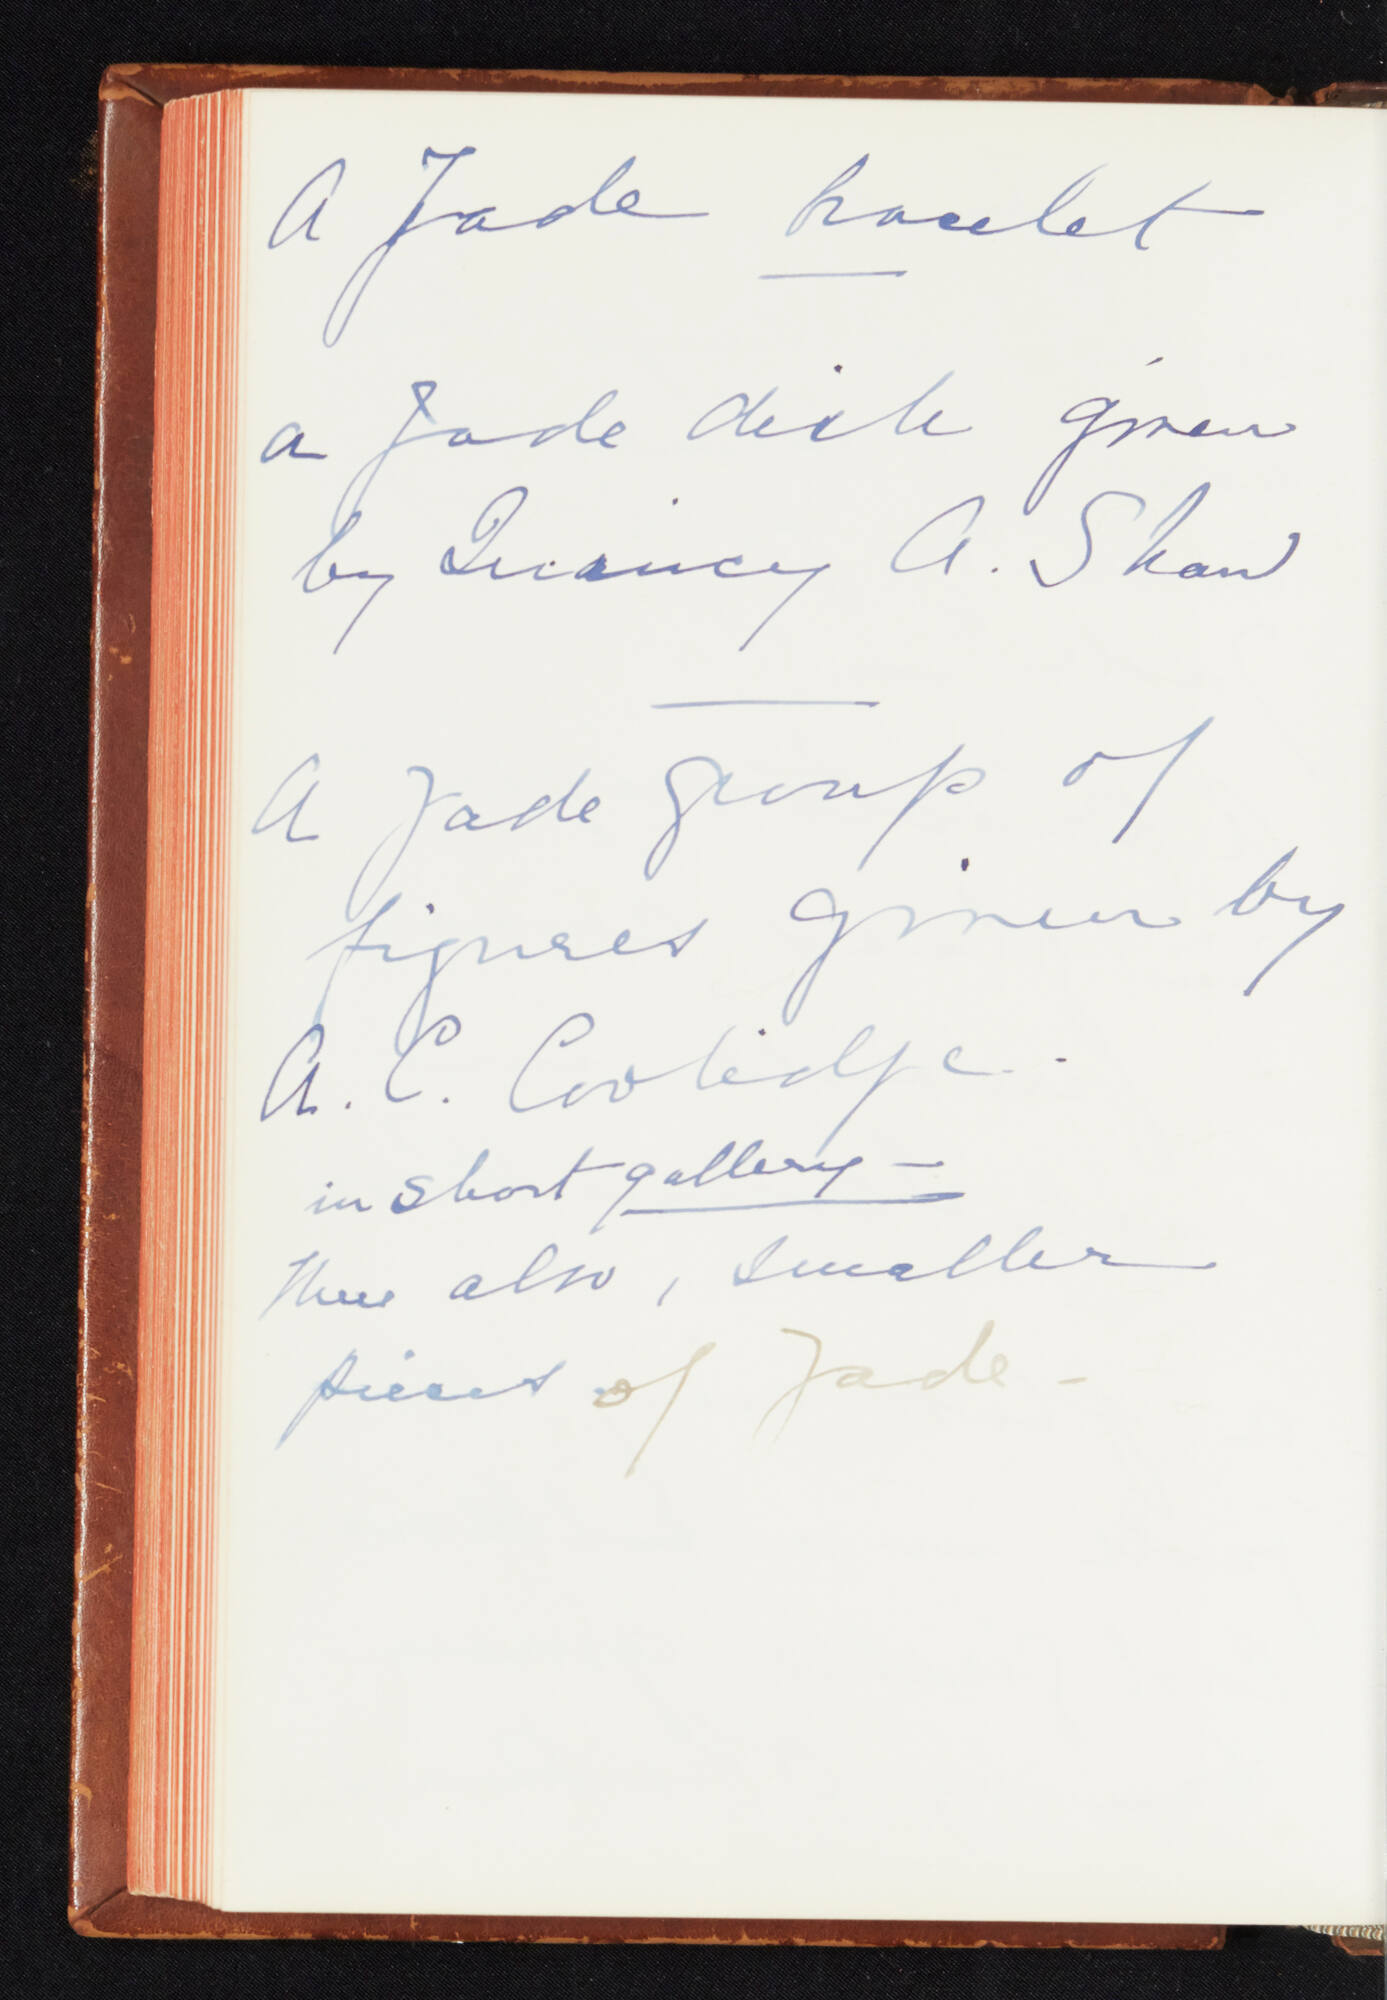 A Jade bracelet
a Jade dish given
by Quincy A. Shaw
A Jade group of
figures given by
A. C. Coolidge.
in short gallery —
There also, smaller
pieces of Jade —